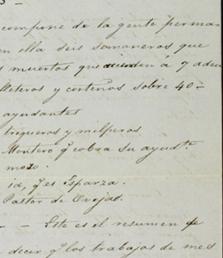 compone de la gente perma
en ella dies semaneros que
muertos que ascienden á 9 ade
fleteros y corteños sobre 40-
ayudantes
trigueros y milperos
Montero q. cobra su ajuste
mozo.
ia, q. es Esparza.
Pastor de Ovejas.
- - Este es el resumen de
decir q. los trabajos de mes